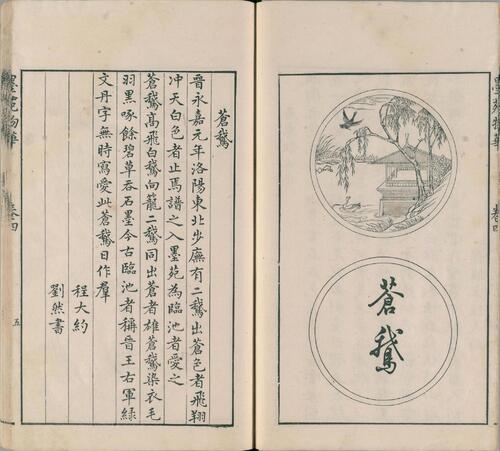 蒼鵝
蒼鵝
晉永嘉元年洛陽東北步廡有二鵝出蒼色者飛翔
冲天白色者止焉譜之入墨苑為臨池者愛之
蒼鵝高飛白鵝向籠二鵝同出蒼者雄蒼鵝染衣毛
羽黑啄餘碧草吞石墨今古臨池者稱晉王右軍綠
文丹字無時寫愛此蒼鵝日作羣
程大約
劉然書
墨苑物華
卷四
五